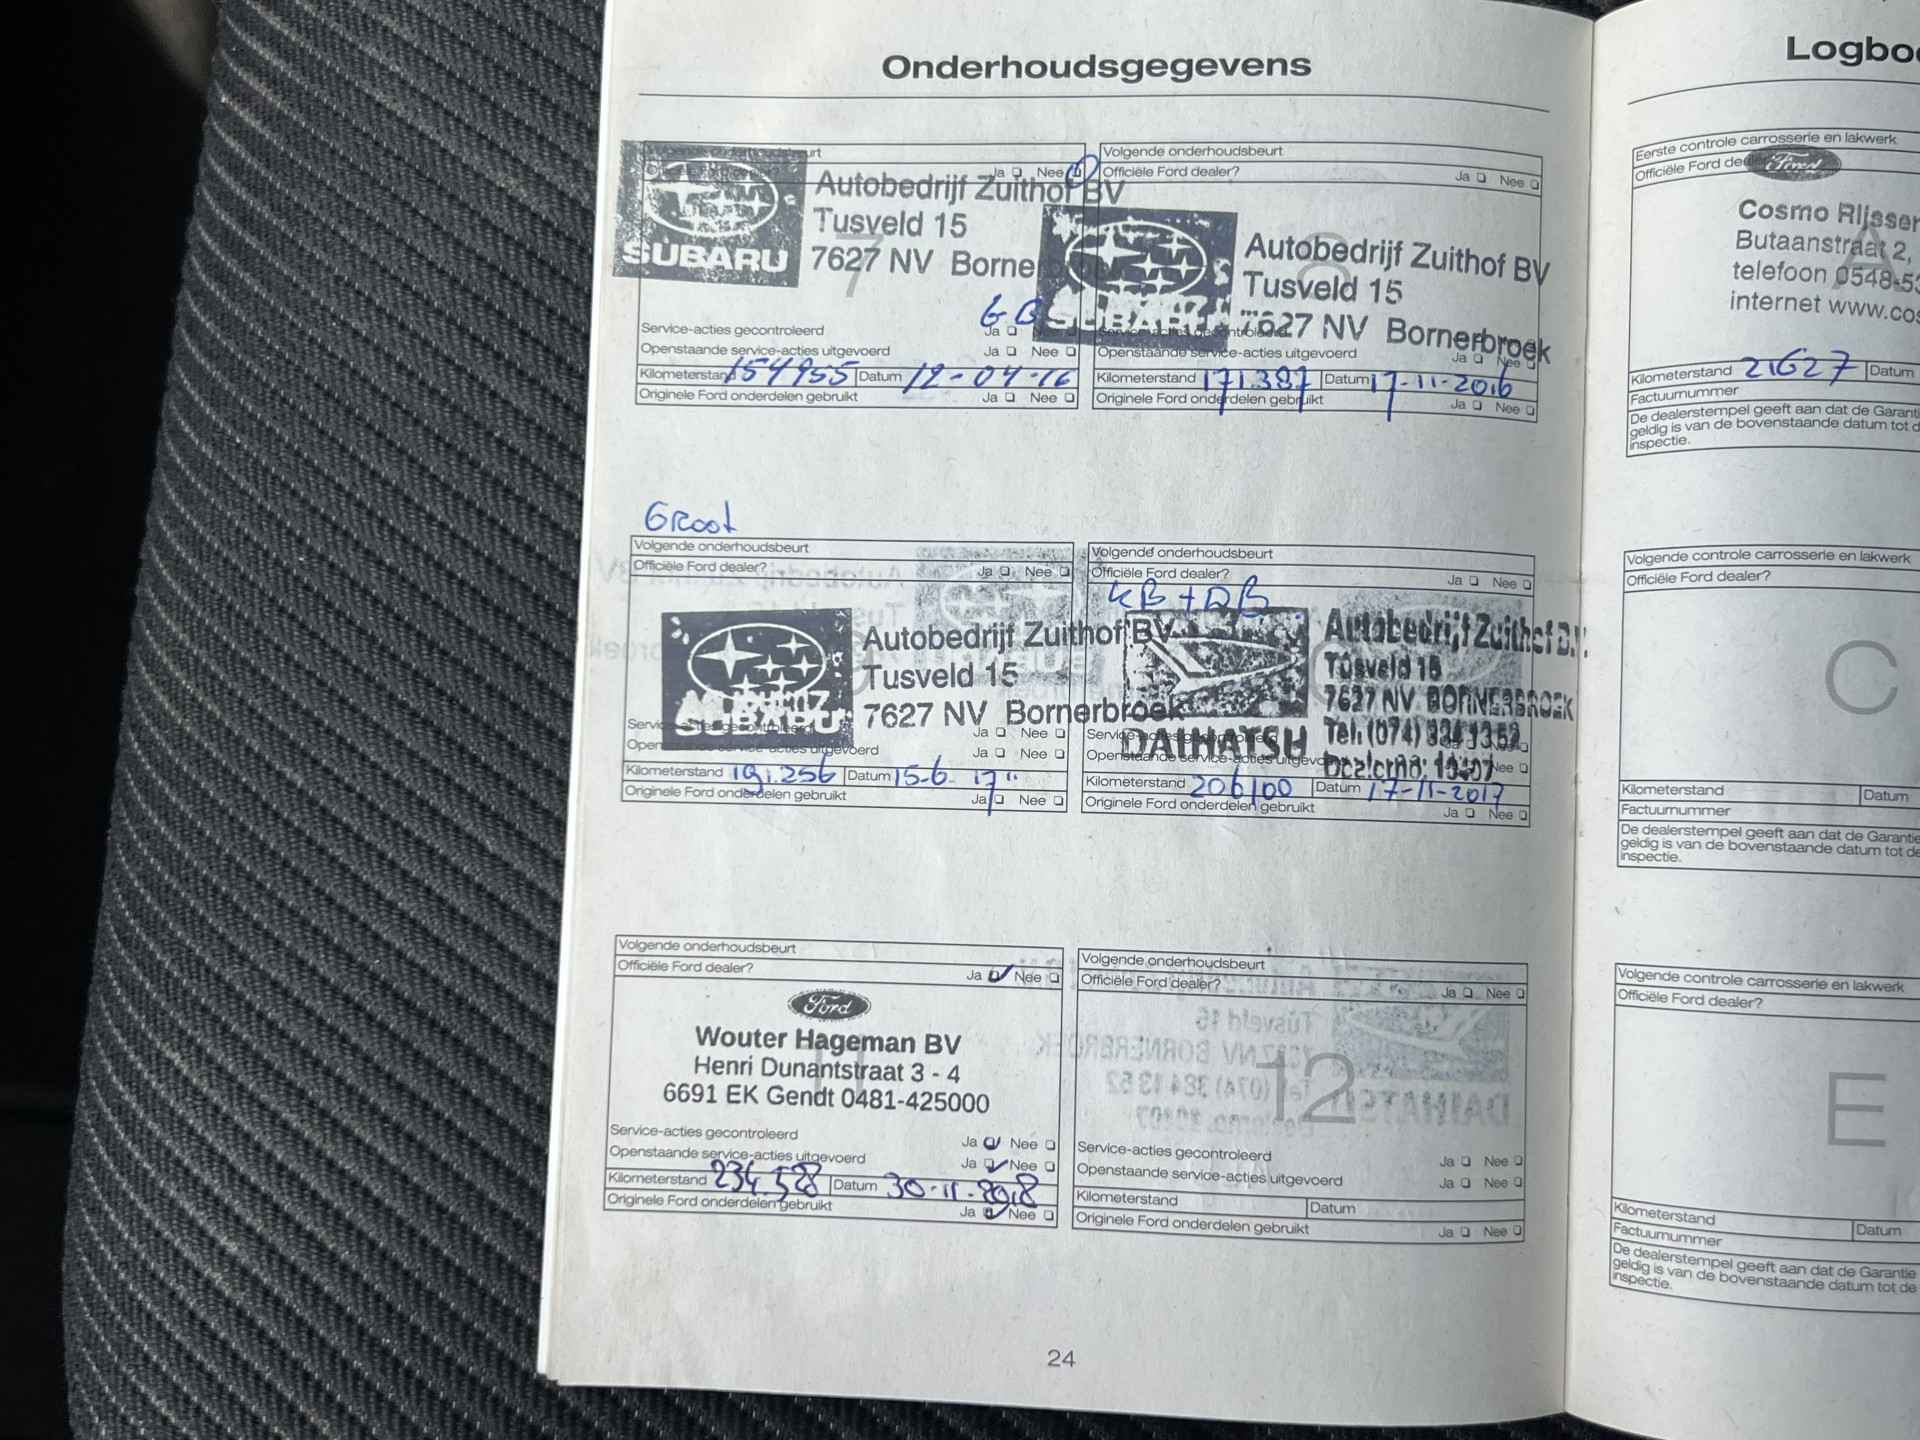 Onderhoudsgegevens
Ja Nee
SUBARU
Autobedrijf Zuithof BV
Tusveld 15
7627 NV Borne
7
GB
Service-acties gecontroleerd
Ja
Openstaande service-acties uitgevoerd
Ja Nee
Kilometerstand 154955 Datum 12-04-16
Originele Ford onderdelen gebruikt
Ja Nee
Volgende onderhoudsbeurt
Officiële Ford dealer?
Ja Nee
SUBARU
Autobedrijf Zuithof BV
Tusveld 15
7627 NV Bornerbroek
8
Openstaande service-acties uitgevoerd
Ja Nee
Kilometerstand 171.387 Datum 17-11-2016
Originele Ford onderdelen gebruikt
Ja Nee
Groot
Volgende onderhoudsbeurt
Officiële Ford dealer?
Ja Nee
SUBARU
Autobedrijf Zuithof BV
Tusveld 15
7627 NV Bornerbroek
Ja Nee
Ja Nee
Kilometerstand 191.256 Datum 15-6-17"
Originele Ford onderdelen gebruikt
Ja Nee
Volgende onderhoudsbeurt
Officiële Ford dealer?
Ja Nee
KB + DB
DAIHATSU
Autobedrijf Zuithof B.V.
Tusveld 15
7627 NV BORNERBROEK
Kilometerstand 206100 Datum 17-11-2017
Originele Ford onderdelen gebruikt
Ja Nee
Volgende onderhoudsbeurt
Officiële Ford dealer?
Ja Nee
Ford
Wouter Hageman BV
Henri Dunantstraat 3 - 4
6691 EK Gendt 0481-425000
11
Service-acties gecontroleerd
Ja Nee
Openstaande service-acties uitgevoerd
Ja Nee
Kilometerstand 234.528 Datum 30-11-2018
Originele Ford onderdelen gebruikt
Ja Nee
Volgende onderhoudsbeurt
Officiële Ford dealer?
Ja Nee
12
Service-acties gecontroleerd
Ja Nee
Openstaande service-acties uitgevoerd
Ja Nee
Kilometerstand Datum
Originele Ford onderdelen gebruikt
Ja Nee
24
Logbo
Eerste controle carrosserie en lakwerk
Officiële Ford
Ford
Cosmo Rijssen
Butaanstraat 2,
telefoon 0548-53
internet www.cos
A
Kilometerstand 21627 Datum
Factuurnummer
De dealerstempel geeft aan dat de Garanti
geldig is van de bovenstaande datum tot d
inspectie.
Volgende controle carrosserie en lakwerk
Officiële Ford dealer?
C
Kilometerstand Datum
Factuurnummer
De dealerstempel geeft aan dat de Garantie
geldig is van de bovenstaande datum tot de
inspectie.
Volgende controle carrosserie en lakwerk
Officiële Ford dealer?
E
Kilometerstand Datum
Factuurnummer
De dealerstempel geeft aan dat de Garantie
geldig is van de bovenstaande datum tot de
inspectie.